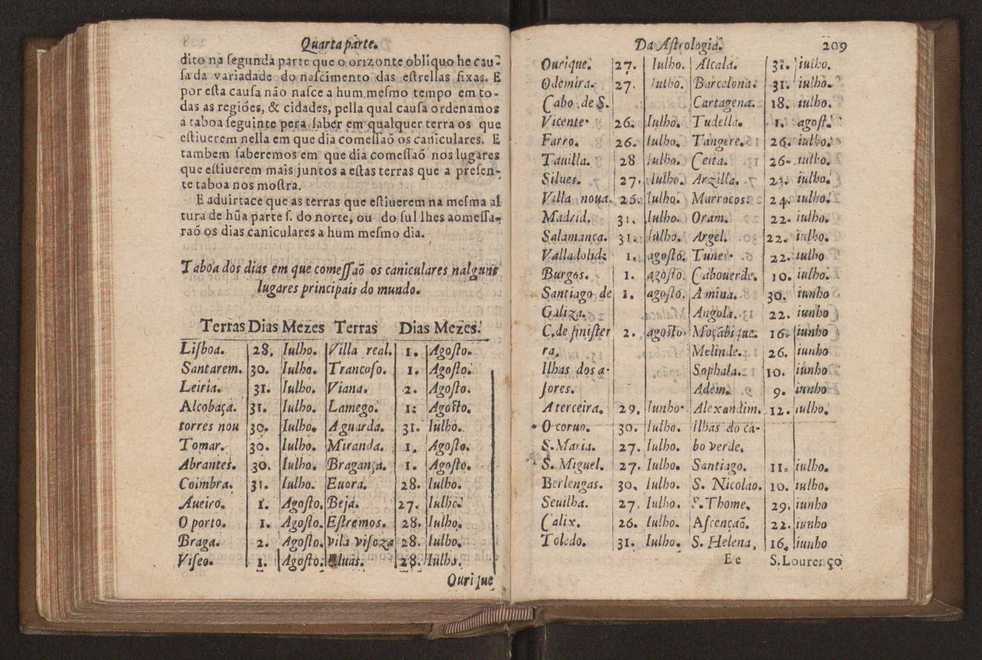 Quarta parte.
dito na segunda parte que o orizonte obliquo he cau-
sa da variadade do nascimento das estrellas fixas. E
por esta causa não nasce a hum mesmo tempo em to-
das as regiões, & cidades, pella qual causa ordenamos
a taboa seguinte pera saber em qualquer terra os que
estiuerem nella em que dia comessaõ os caniculares. E
tambem saberemos em que dia comessaõ nos lugares
que estiuerem mais juntos a estas terras que a presen-
te taboa nos mostra.
E aduirtace que as terras que estiuerem na mesma al
tura de hũa parte s. do norte, ou do sul lhes aomessa-
raõ os dias caniculares a hum mesmo dia.
Taboa dos dias em que comessaõ os caniculares nalguns
lugares principais do mundo.
Terras Dias Mezes Terras Dias Mezes.
Lisboa. 28. Iulho. Villa real. 1. Agosto.
Santarem. 30. Iulho. Trancoso. 1. Agosto.
Leiria. 31. Iulho. Viana. 2. Agosto.
Alcobaça. 31. Iulho. Lamego. 1. Agosto.
torres nou 30. Iulho. Aguarda. 31. Iulho.
Tomar. 30. Iulho. Miranda. 1. Agosto.
Abrantes. 30. Iulho. Bragança. 1. Agosto.
Coimbra. 31. Iulho. Euora. 28. Iulho.
Aueiro. 1. Agosto. Beja. 27. Iulho.
O porto. 1. Agosto. Estremos. 28. Iulho.
Braga. 2. Agosto. vila visoza 28. Iulho.
Viseo. 1. Agosto. Eluas. 28. Iulho.
Ourique
Da Astrologia. 209
Ourique. 27. Iulho. Alcala. 31. iulho.
Odemira. 27. Iulho. Barcelona. 31. iulho.
Cabo de S. Cartagena. 18. iulho.
Vicente. 26. Iulho. Tudella. 1. agost.
Farro. 26. Iulho. Tangere. 26. iulho.
Tauilla. 28 Iulho. Ceita. 26. iulho.
Silues. 27. Iulho. Arzilla. 23. iulho.
Villa noua. 26. Iulho. Marrocos. 24. iulho.
Madrid. 31. Iulho. Oram. 22. iulho.
Salamança. 31. Iulho. Argel. 22. iulho.
Valladolid. 1. agosto. Tunes. 22. iulho
Burgos. 1. agosto. Caboverde. 10. iulho.
Santiago de 1. agosto. Amina. 30. iunho
Galiza. Angola. 22. iunho
C. de finister 2. agosto Moçãbique. 16. iunho
ra. Melinde. 26. iunho
Ilhas dos a- Sophala. 10. iunho
sores. Adem. 9. iunho
A terceira. 29. Iunho Alexandim. 12. iulho.
O coruo. 30. Iulho. Ilhas do ca-
S. Maria. 27. Iulho. bo verde.
S. Miguel. 27. Iulho. Santiago. 11. iulho.
Berlengas. 30. Iulho. S. Nicolao. 10. iulho.
Seuilha. 27. Iulho. S. Thome. 29. iunho
Calix. 26. Iulho. Ascençaõ. 22. iunho
Toledo. 31. Iulho. S. Helena. 16. iunho
E e S. Lourenço